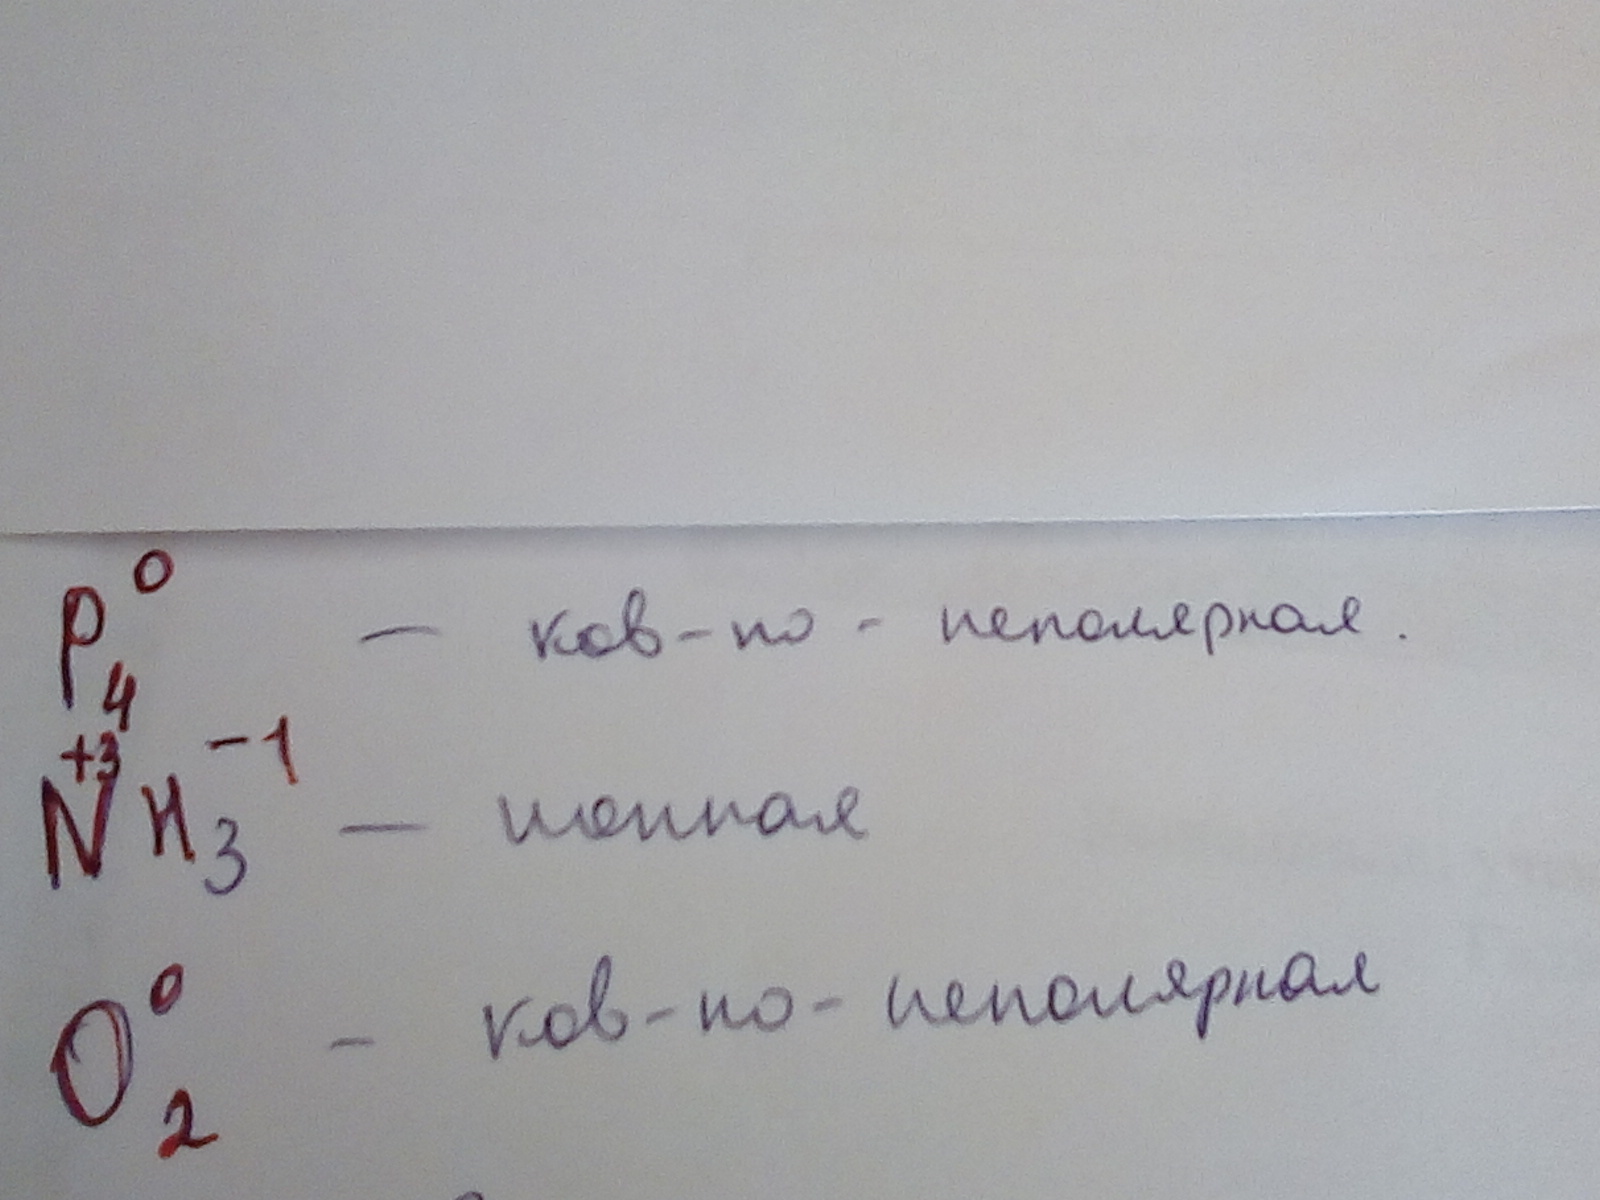 P₄⁰ — ков-но-неполярная.
N⁺³H₃⁻¹ — ионная
O₂⁰ - ков-но-неполярная